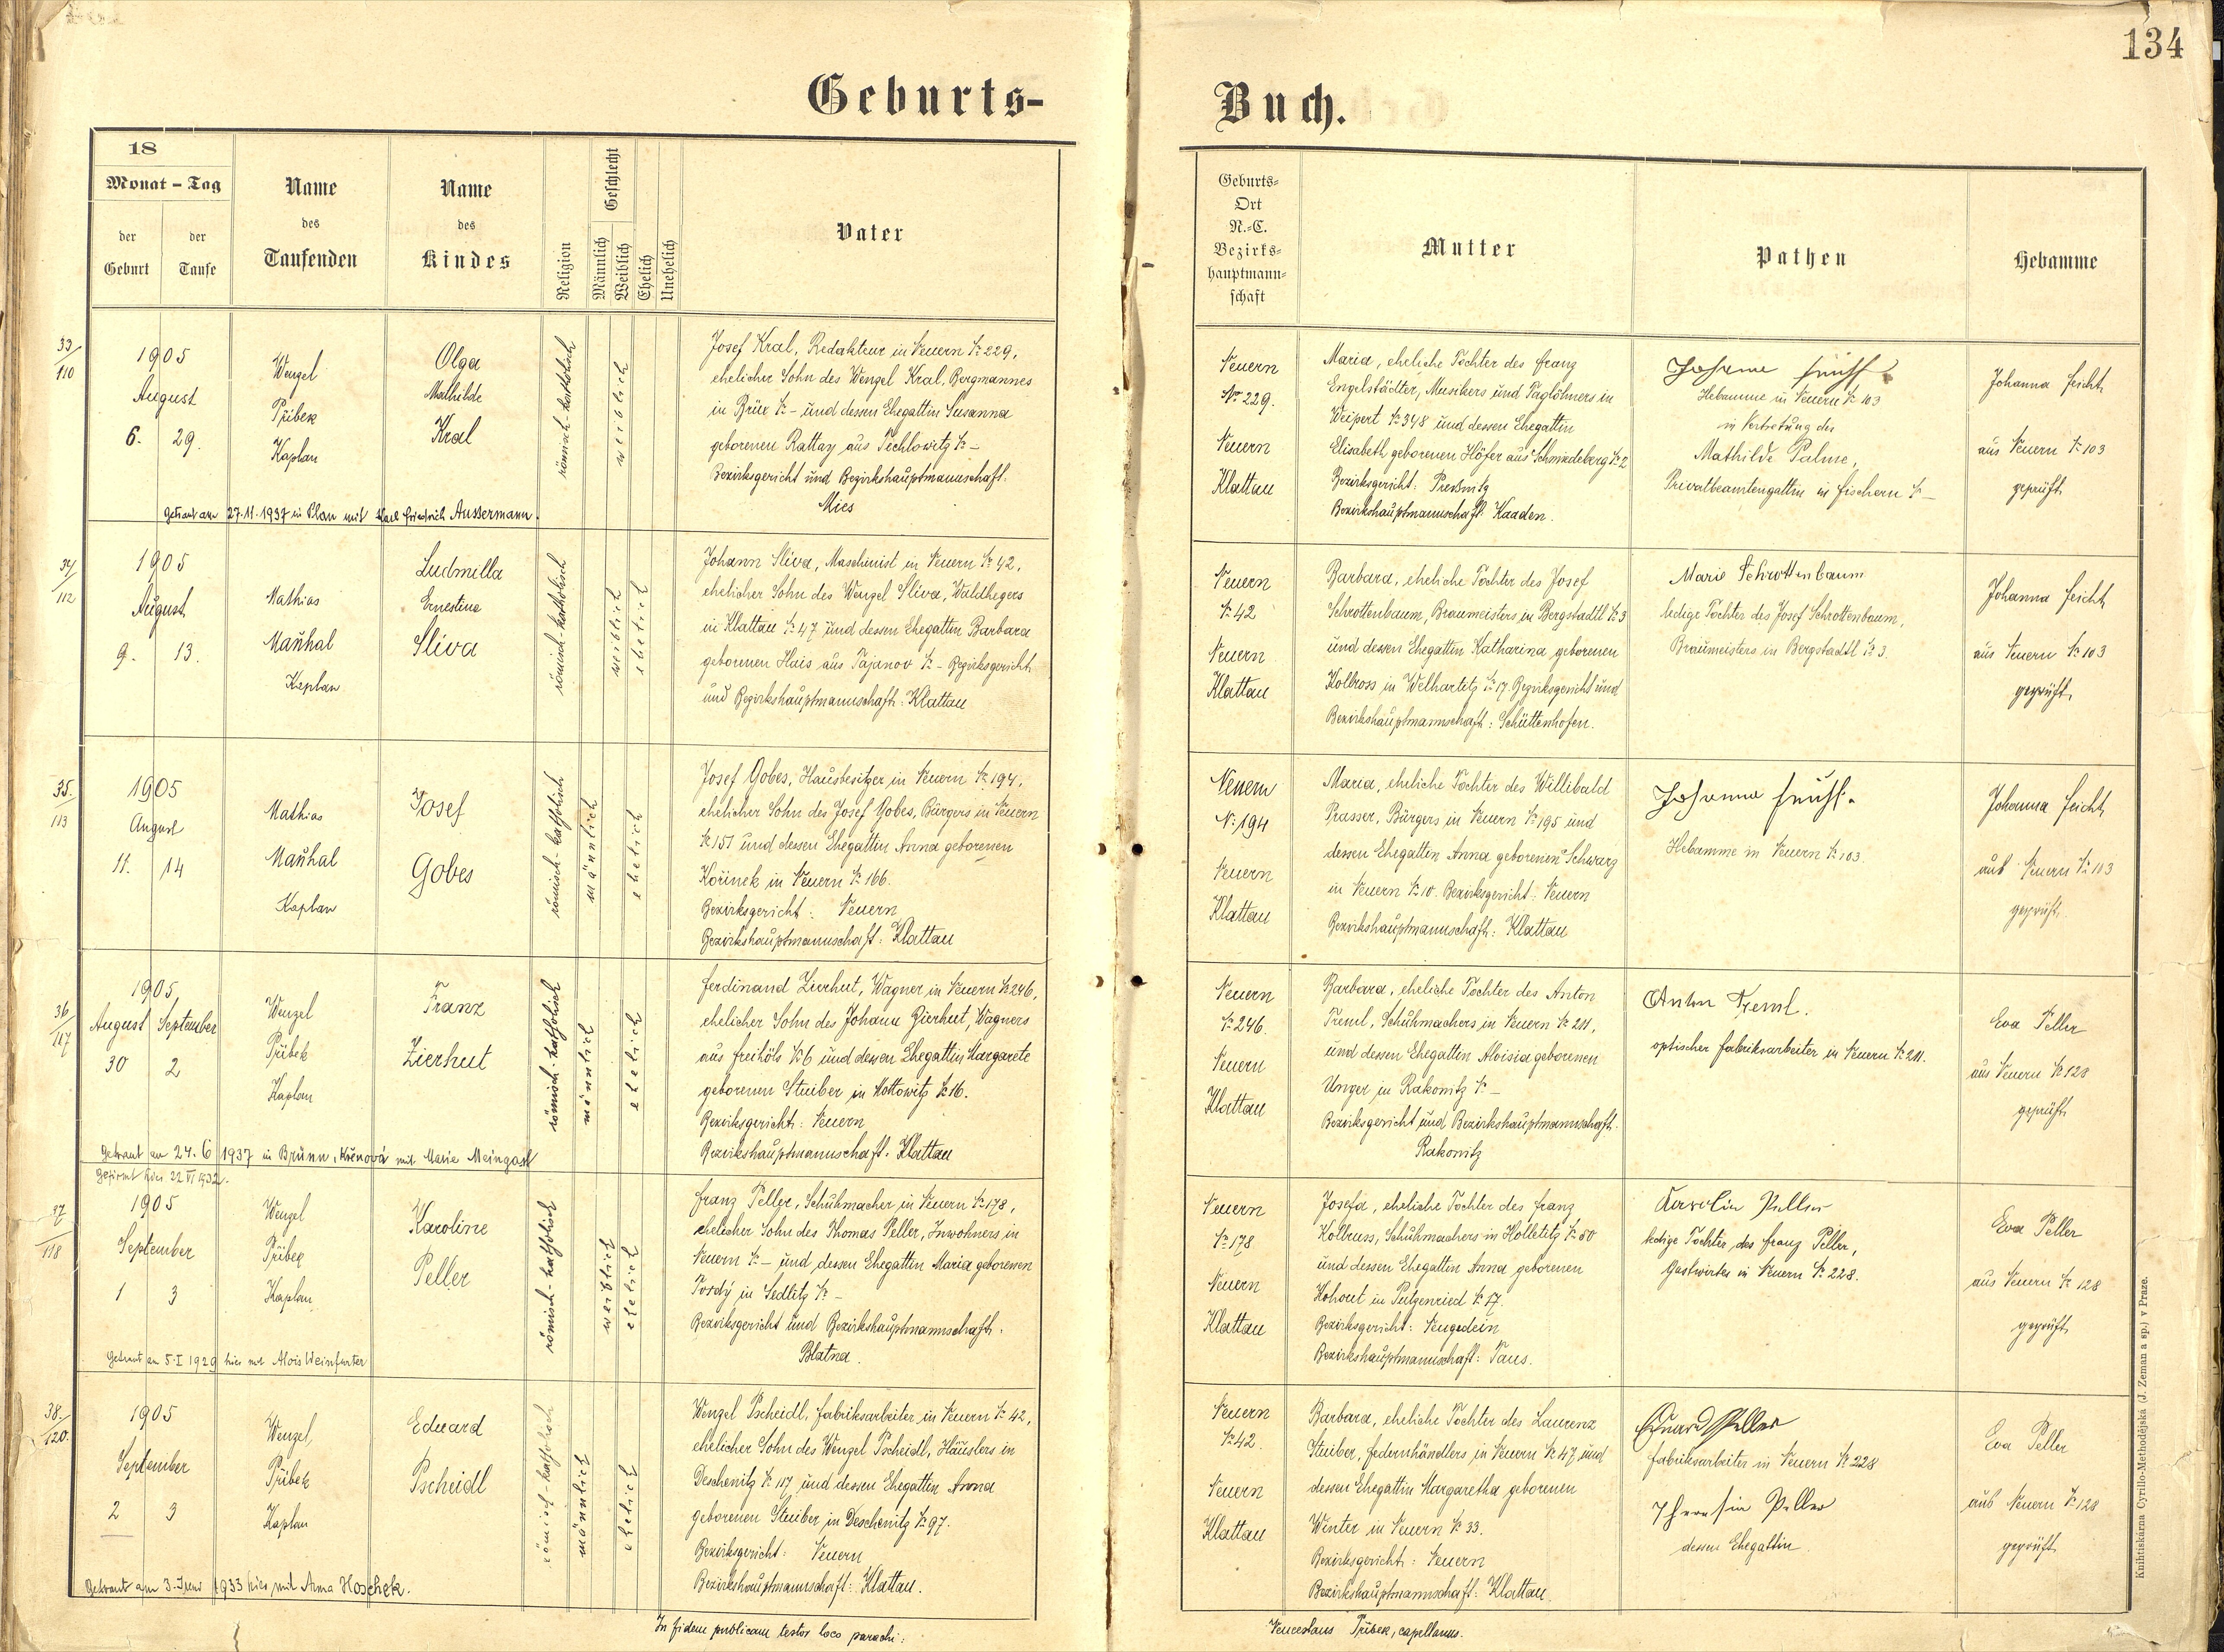 134
Geburts-
Buch.
18
Monat - Tag
der Geburt
der Taufe
Name des Taufenden
Name des Kindes
Religion
Geschlecht
Männlich
Weiblich
Ehelich
Unehelich
Vater
Geburts-
Ort
N.-C.
Bezirks-
hauptmann-
schaft
Mutter
Pathen
Hebamme
33/110
1905
August
6. 29.
Wenzel
Přibek
Kaplan
Olga
Mathilde
Kral
römisch-katholisch
weiblich
Josef Kral, Redakteur in Neuern № 229,
ehelicher Sohn des Wenzel Kral, Bergmannes
in Brüx № - und dessen Ehegattin Susanna
geborenen Rattay aus Techlowitz № -
Bezirksgericht und Bezirkshauptmannschaft.
Mies
Getraut am 27.11.1937 in Plan mit Karl Friedrich Aussermann.
Neuern
№ 229.
Neuern
Klattau
Maria, eheliche Tochter des Franz
Engelstädter, Musikers und Taglöhners in
Weipert № 348 und dessen Ehegattin
Elisabeth geborenen Höfer aus Schmiedeberg № 2
Bezirksgericht: Preßnitz
Bezirkshauptmannschaft: Kaaden.
Johanna Feicht
Hebamme in Neuern № 103
in Vertretung der
Mathilde Palme,
Privatbeamtengattin in Fischern № -
Johanna Feicht
aus Neuern № 103
geprüft
34/112
1905
August
9. 13.
Mathias
Maňhal
Kaplan
Ludmilla
Ernestine
Sliva
römisch-katholisch
weiblich
ehelich
Johann Sliva, Maschinist in Neuern № 42,
ehelicher Sohn des Wenzel Sliva, Waldhegers
in Klattau № 47 und dessen Ehegattin Barbara
geborenen Hais aus Tajanov № - Bezirksgericht
und Bezirkshauptmannschaft: Klattau
Neuern
№ 42
Neuern
Klattau
Barbara, eheliche Tochter des Josef
Schrottenbaum, Braumeisters in Bergstadtl № 3
und dessen Ehegattin Katharina geborenen
Kolbross in Welhartitz № 17. Bezirksgericht und
Bezirkshauptmannschaft: Schüttenhofen.
Marie Schrottenbaum
ledige Tochter des Josef Schrottenbaum,
Braumeisters in Bergstadtl № 3.
Johanna Feicht
aus Neuern № 103
geprüft
35./113
1905
August
11. 14
Mathias
Maňhal
Kaplan
Josef
Gobes
römisch-katholisch
männlich
ehelich
Josef Gobes, Hausbesitzer in Neuern № 194,
ehelicher Sohn des Josef Gobes, Bürgers in Neuern
№ 151 und dessen Ehegattin Anna geborenen
Kořinek in Neuern № 166.
Bezirksgericht: Neuern
Bezirkshauptmannschaft: Klattau
Neuern
№ 194
Neuern
Klattau
Maria, eheliche Tochter des Willibald
Prasser, Bürgers in Neuern № 195 und
dessen Ehegattin Anna geborenen Schwarz
in Neuern № 10. Bezirksgericht: Neuern
Bezirkshauptmannschaft: Klattau
Johanna Feicht.
Hebamme in Neuern № 103.
Johanna Feicht
aus Neuern № 103
geprüft
36/117
1905
August September
30 2
Wenzel
Přibek
Kaplan
Franz
Zierhut
römisch-katholisch
männlich
ehelich
Ferdinand Zierhut, Wagner in Neuern № 246,
ehelicher Sohn des Johann Zierhut, Wagners
aus Freihöls № 6 und dessen Ehegattin Margarete
geborenen Stuiber in Mottowitz № 16.
Bezirksgericht: Neuern
Bezirkshauptmannschaft: Klattau
Getraut am 24.6 1937 in Brünn, Křenová mit Marie Meingast
Gefirmt hier 22 VI 1932.
Neuern
№ 246.
Neuern
Klattau
Barbara, eheliche Tochter des Anton
Treml, Schuhmachers in Neuern № 211,
und dessen Ehegattin Aloisia geborenen
Unger in Rakonitz № -
Bezirksgericht und Bezirkshauptmannschaft.
Rakonitz
Anton Treml.
optischer Fabriksarbeiter in Neuern № 211.
Eva Peller
aus Neuern № 128
geprüft
37/118
1905
September
1 3
Wenzel
Přibek
Kaplan
Karoline
Peller
römisch-katholisch
weiblich
ehelich
Franz Peller, Schuhmacher in Neuern № 178,
ehelicher Sohn des Thomas Peller, Inwohners in
Neuern № - und dessen Ehegattin Maria geborenen
Tvrdý in Sedlitz № -
Bezirksgericht und Bezirkshauptmannschaft.
Blatna.
Getraut am 5.I 1929 hier mit Alois Weinfurter
Neuern
№ 178
Neuern
Klattau
Josefa, eheliche Tochter des Franz
Kollruss, Schuhmachers in Holletitz № 50
und dessen Ehegattin Anna geborenen
Kohout in Putzenried № 17.
Bezirksgericht: Neugedein
Bezirkshauptmannschaft: Taus.
Karolin Peller
ledige Tochter des Franz Peller,
Gastwirtes in Neuern № 228.
Eva Peller
aus Neuern № 128
geprüft
38./120.
1905
September
2 3
Wenzel
Přibek
Kaplan
Eduard
Pscheidl
römisch-katholisch
männlich
ehelich
Wenzel Pscheidl, Fabriksarbeiter in Neuern № 42,
ehelicher Sohn des Wenzel Pscheidl, Häuslers in
Deschenitz № 117 und dessen Ehegattin Anna
geborenen Stuiber in Deschenitz № 97.
Bezirksgericht: Neuern
Bezirkshauptmannschaft: Klattau.
Getraut am 3. Juni 1933 hier mit Anna Hoschek.
Neuern
№ 42.
Neuern
Klattau
Barbara, eheliche Tochter des Laurenz
Stuiber, Federnhändlers in Neuern № 47 und
dessen Ehegattin Margaretha geborenen
Winter in Neuern № 33.
Bezirksgericht: Neuern
Bezirkshauptmannschaft: Klattau
Eduard Peller
Fabriksarbeiter in Neuern № 228
Theresia Peller
dessen Ehegattin.
Eva Peller
aus Neuern № 128
geprüft
In fidem publicam testor loco parochi:
Venceslaus Přibek, capellanus.
Knihtiskárna Cyrillo-Methodějská (J. Zeman a sp.) v Praze.